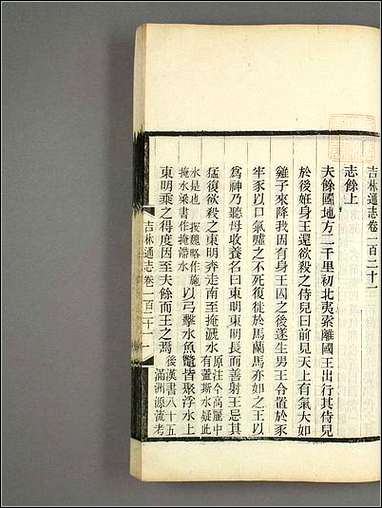 吉林通志卷一百二十一
志餘上
夫餘國地方二千里初北夷索離國王出行其侍兒
於後姙身王還欲殺之侍兒曰前見天上有氣大如
雞子來降我因有身王囚之後遂生男王合置於豕
牢豕以口氣噓之不死復徙於馬蘭馬亦如之王以
為神乃聽母收養名曰東明東明長而善射王忌其
猛復欲殺之東明奔走南至掩㴲水原注今高麗中有蓋斯水疑此
水是也按魏略作施掩水梁書作掩滯水以弓擊水魚鼈皆聚浮水上
東明乘之得度因至夫餘而王之焉後漢書八十五滿洲源流考
吉林通志卷一百二十一 一